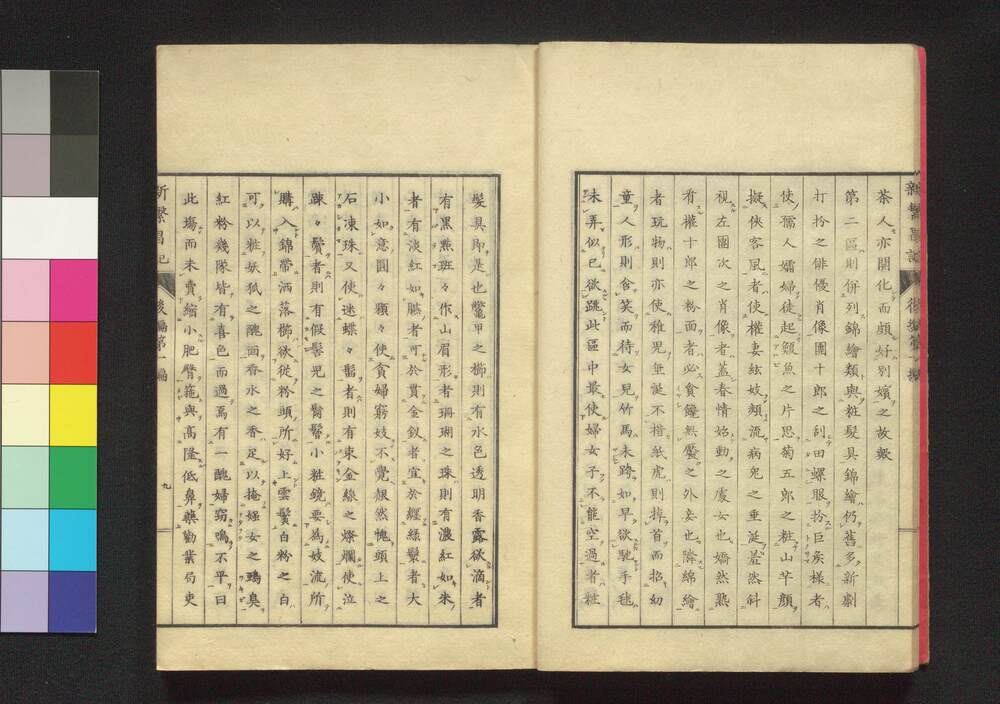 茶人亦開化而頗好別嬪之故歟
第二區則併列錦繪類與粧髮具錦繪仍舊多新劇
打扮之俳優肖像團十郎之刮田螺眼扮巨矦樣者
使孺人孀婦徒起鰒魚之片思菊五郎之粧山芋顏
擬俠客風者使權妻絃妓頻流病兒之垂涎羞然斜
視左團次之肖像者蓋春情始動之處女也嬌然熟
看權十郎之粉面者必貪饞無饜之外妾也隣綿繪
者玩物則亦使稚兒垂涎不措紙虎則掉首而招幼
童人形則含笑而待女兒竹馬未跨如早欲馳手毬
未弄似已欲跳此區中最使婦女子不能空過者粧
髮具即是也鼈甲之櫛則有水色透明香露欲滴者
有黑點班々作山眉形者珊瑚之珠則有濃紅如朱
者有淡紅如
者可於貫金釵者宜於纏絲鬟者大
小如意圓々顆々使貧婦窮妓不覺靦然愧頭上之
石凍珠又使迷蝶々髷者則有束金線之燦爛使泣
踈々鬢者則有假髻兒之
小粧鏡要爲妓流所
購入錦帶洒落櫛欲從粉頭所好上雲鬟白粉之白
可以粧妖狐之醜面香水之香足以掩婬女之鴟臭
紅粉幾隊皆有喜色而過焉有一醜婦竊鳴不平曰
此塲而未賣縮小肥臀箍與高隆低鼻藥勸業局吏
新繁昌記
後編第一編
九